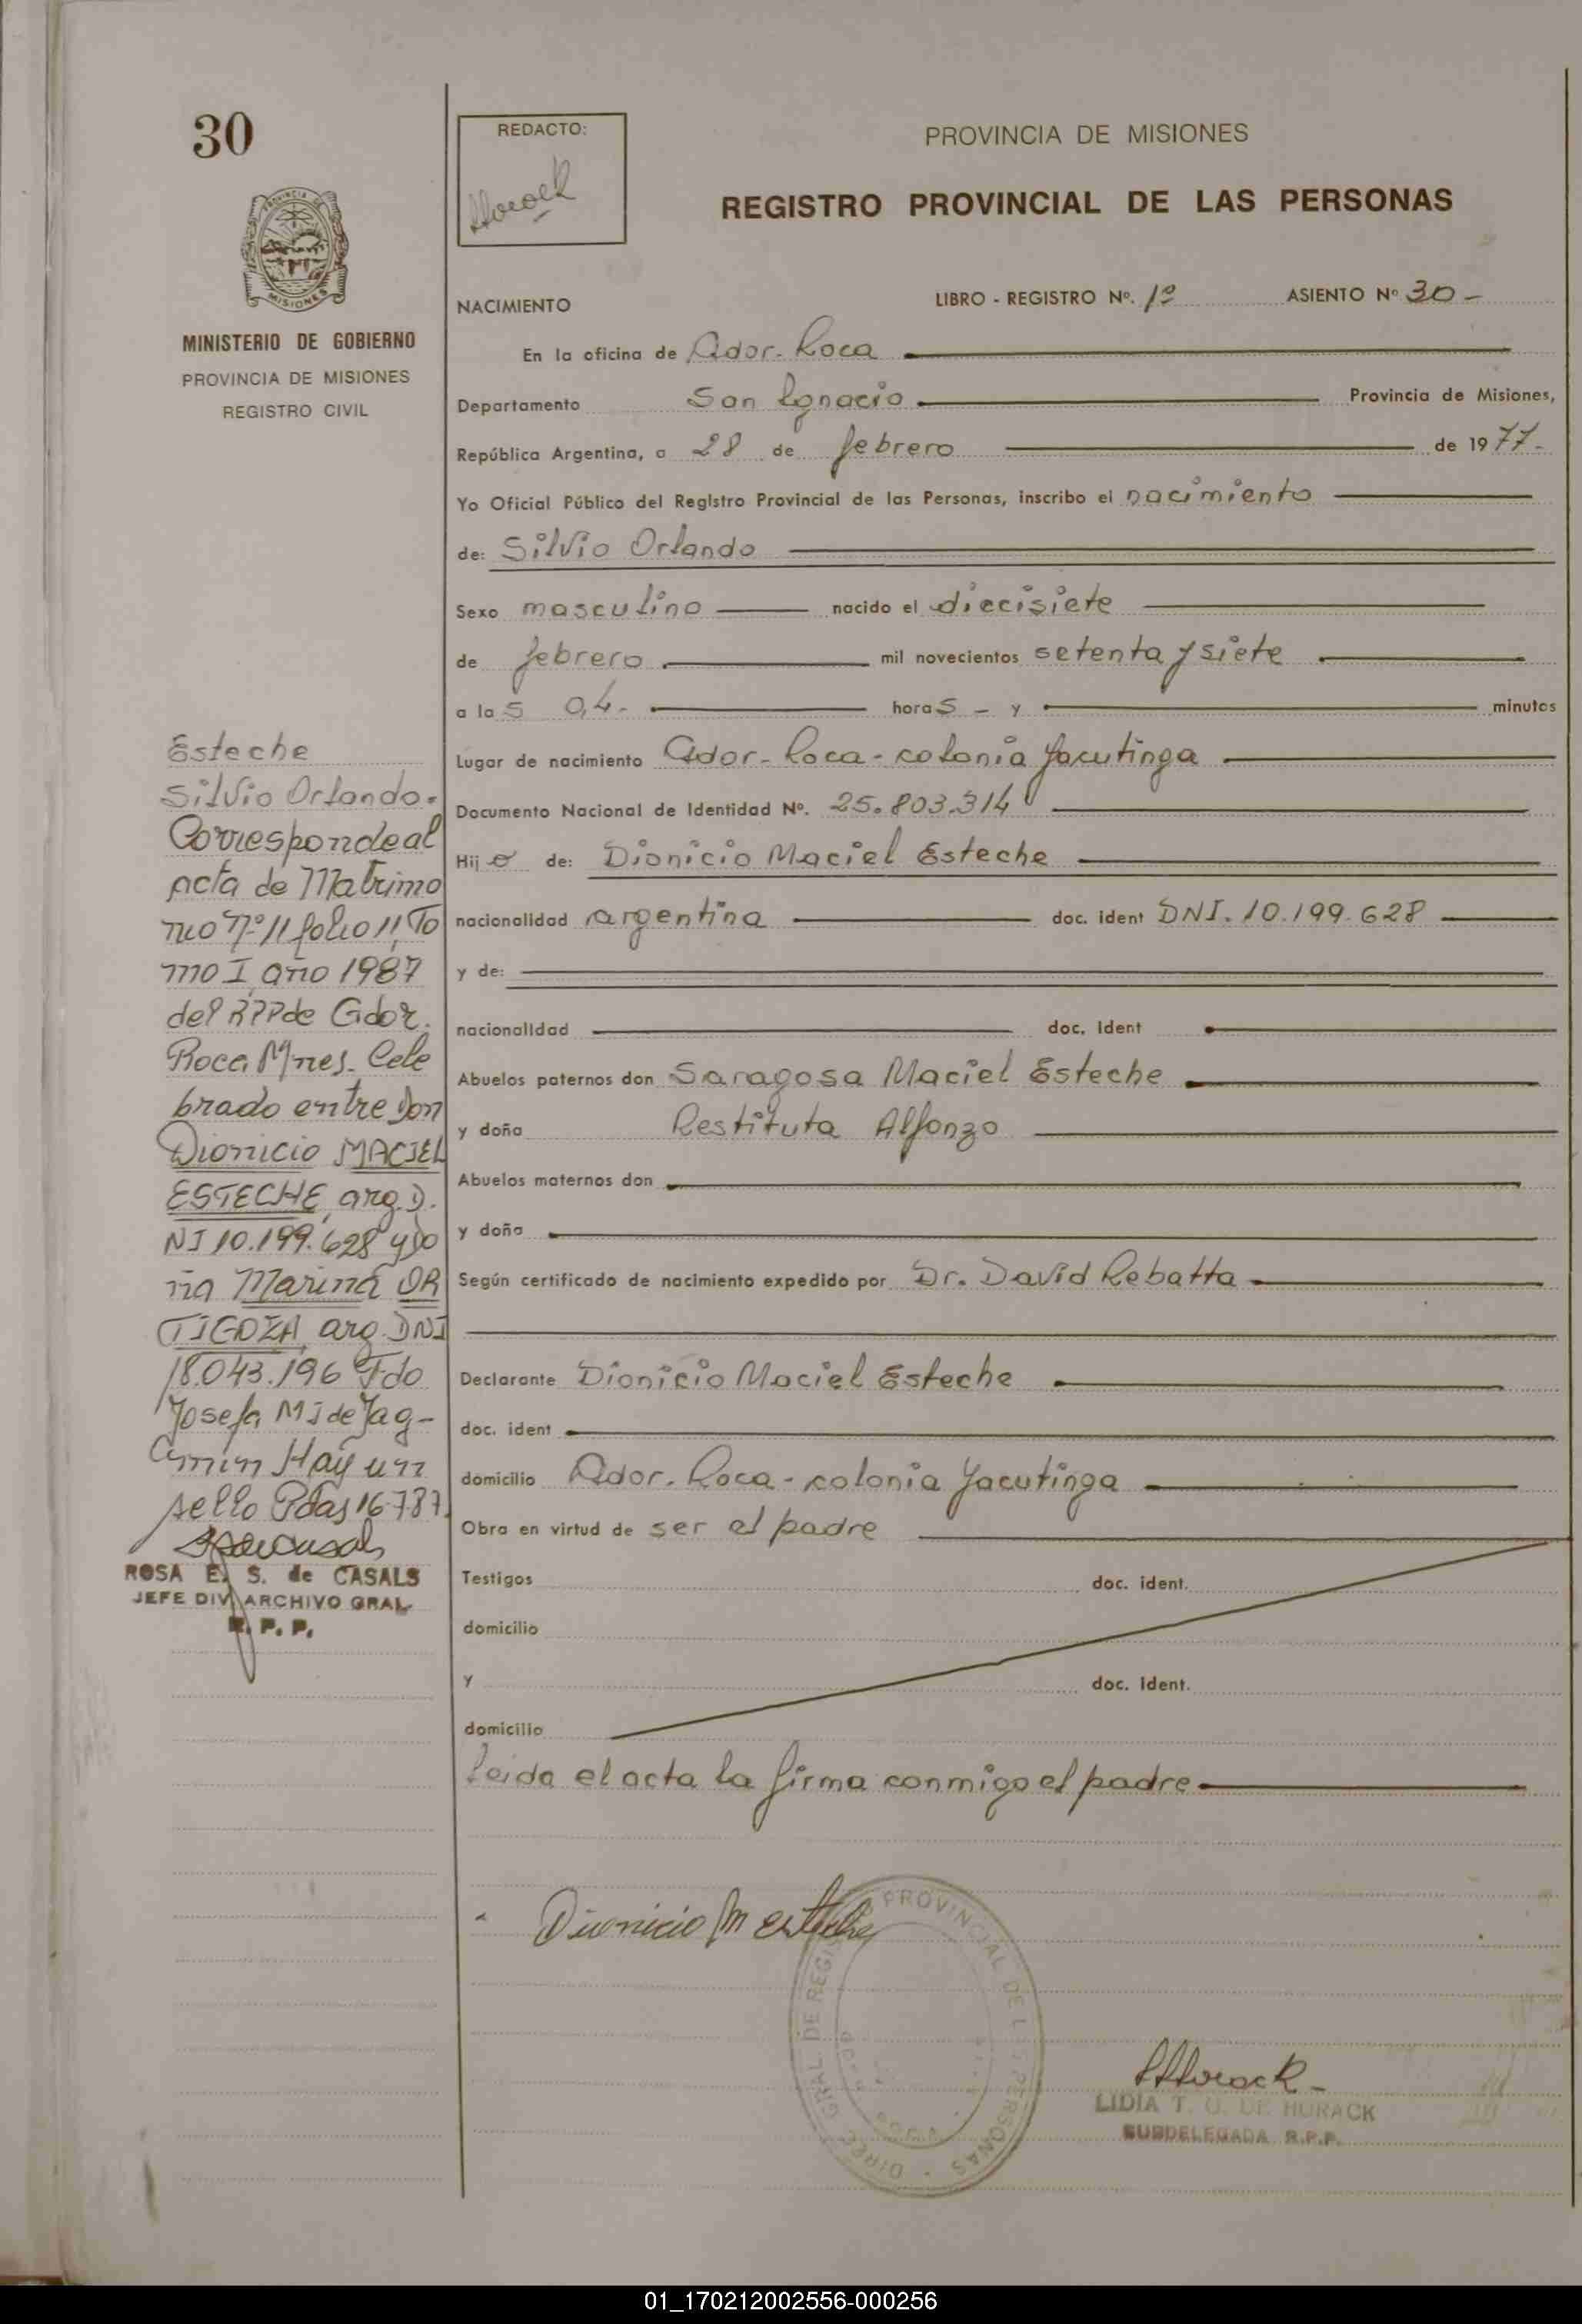 30
MINISTERIO DE GOBIERNO
PROVINCIA DE MISIONES
REGISTRO CIVIL
REDACTO:
PROVINCIA DE MISIONES
REGISTRO PROVINCIAL DE LAS PERSONAS
NACIMIENTO LIBRO - REGISTRO Nº. 1º ASIENTO Nº 30 -
En la oficina de Gdor. Roca
Departamento San Ignacio Provincia de Misiones,
República Argentina, a 28 de febrero de 1977.-
Yo Oficial Público del Registro Provincial de las Personas, inscribo el nacimiento
de: Silvio Orlando
Sexo masculino nacido el diecisiete
de febrero mil novecientos setenta y siete
a las 04.- horas - y minutos
Lugar de nacimiento Gdor. Roca - colonia Yacutinga
Documento Nacional de Identidad Nº. 25.803.314
Hijo de: Dionicio Maciel Esteche
nacionalidad argentina doc. ident DNI. 10.199.628
y de:
nacionalidad doc. ident
Abuelos paternos don Saragosa Maciel Esteche
y doña Restituta Alfonzo
Abuelos maternos don
y doña
Según certificado de nacimiento expedido por Dr. David Rebatta
Declarante Dionicio Maciel Esteche
doc. ident
domicilio Gdor. Roca - colonia Yacutinga
Obra en virtud de ser el padre
Testigos doc. ident.
domicilio
y doc. ident.
domicilio
leida el acta la firma conmigo el padre
Dionicio M Esteche
LIDIA T. O. DE HORACK
SUBDELEGADA R.P.P.
Esteche
Silvio Orlando.
Corresponde al
acta de Matrimo
nio Nº 11 folio 11 To
mo I, año 1987
del RPP de Gdor.
Roca Mnes. Cele
brado entre Don
Dionicio MACIEL
ESTECHE, arg. D.
NI 10.199.628 y do
ña Marina OR
TIGOZA, arg. DNI
18.043.196 Fdo
Josefa M J de Jag-
Hay un
sello Pdas 16-7-87.
ROSA E. S. de CASALS
JEFE DIV. ARCHIVO GRAL
R. P. P.
01_170212002556-000256